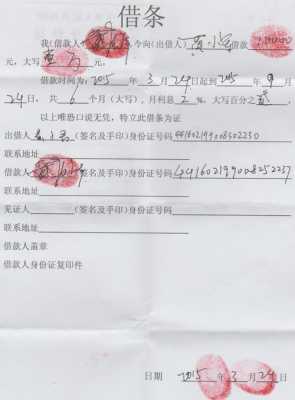 借条
我(借款人)今向(出借人)贾小军借款
元,大写壹万元。
借款时间为:2015年3月24日起到2015年9月
24日,共6个月(大写),月利息2%,大写百分之贰.
以上唯恐口说无凭,特立此借条为证
出借人(签名及手印)身份证号码
联系地址
借款人(签名及手印)身份证号码
联系地址
见证人(签名及手印)身份证号码
联系地址
借款人盖章
借款人身份证复印件
日期 2015年3月24日